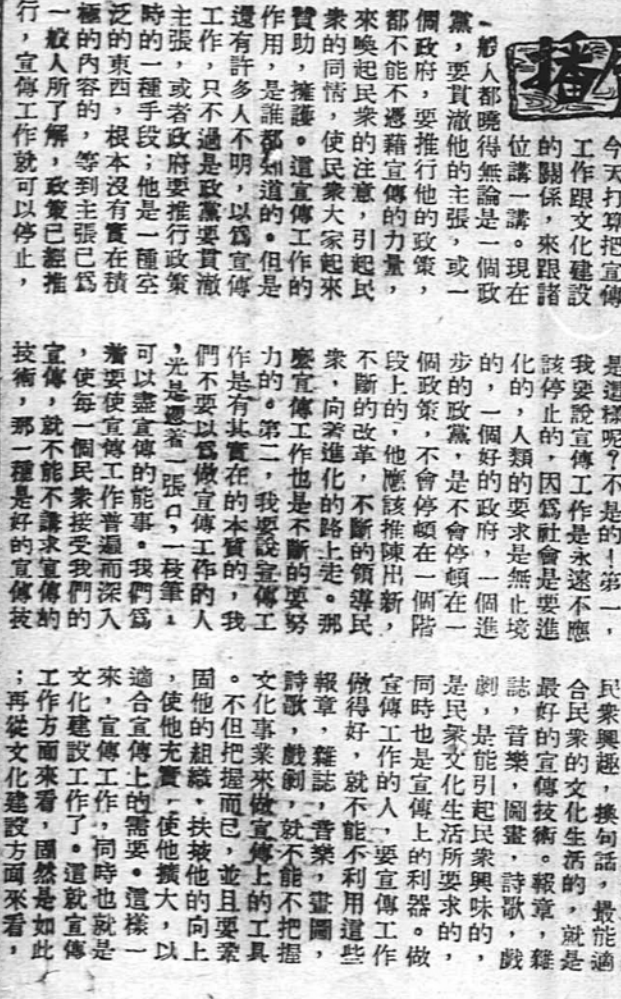 播
今天打算把宣傳
工作跟文化建設
的關係，來跟諸
位講一講。現在
一般人都曉得無論是一個政
黨，要貫澈他的主張，或一
個政府，要推行他的政策，
都不能不憑藉宣傳的力量，
來喚起民衆的注意，引起民
衆的同情，使民衆大家起來
贊助，擁護。這宣傳工作的
作用，是誰都知道的。但是
還有許多人不明，以爲宣傳
工作，只不過是政黨要貫澈
主張，或者政府要推行政策
時的一種手段；他是一種空
泛的東西，根本沒有實在積
極的內容的，等到主張已爲
一般人所了解，政策已經推
行，宣傳工作就可以停止，
是這樣呢？不是的！第一，
我要說宣傳工作是永遠不應
該停止的，因爲社會是要進
化的，人類的要求是無止境
的，一個好的政府，一個進
步的政黨，是不會停頓在一
個政策，不會停頓在一個階
段上的，他應該推陳出新，
不斷的改革，不斷的領導民
衆，向著進化的路上走。那
麽宣傳工作也是不斷的要努
力的。第二，我要說宣傳工
作是有其實在的本質的，我
們不要以爲做宣傳工作的人
，光是憑著一張口，一枝筆，
可以盡宣傳的能事。我們爲
着要使宣傳工作普遍而深入
，使每一個民衆接受我們的
宣傳，就不能不講求宣傳的
技術，那一種是好的宣傳技
民衆興趣，換句話，最能適
合民衆的文化生活的，就是
最好的宣傳技術。報章，雜
誌，音樂，圖畫，詩歌，戲
劇，是能引起民衆興味的，
是民衆文化生活所要求的，
同時也是宣傳上的利器。做
宣傳工作的人，要宣傳工作
做得好，就不能不利用這些
報章，雜誌，音樂，畫圖，
詩歌，戲劇，就不能不把握
文化事業來做宣傳上的工具
。不但把握而已，並且要鞏
固他的組織，扶掖他的向上
，使他充實，使他擴大，以
適合宣傳上的需要。這樣一
來，宣傳工作，同時也就是
文化建設工作了。這就宣傳
工作方面來看，固然是如此
；再從文化建設方面來看，